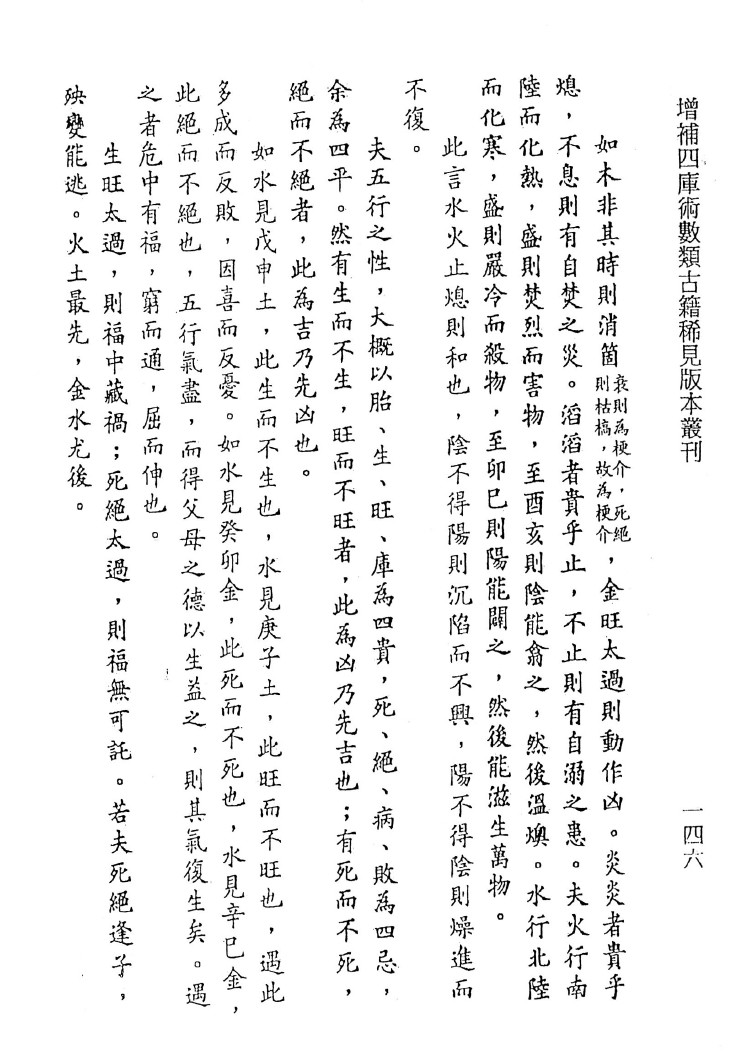 增補四庫術數類古籍稀見版本叢刊
一四六
如木非其時則消箇衰則為梗介，死絕則枯槁，故為梗介，金旺太過則動作凶。炎炎者貴乎
熄，不息則有自焚之災。滔滔者貴乎止，不止則有自溺之患。夫火行南
陸而化熱，盛則焚烈而害物，至酉亥則陰能翕之，然後溫燠。水行北陸
而化寒，盛則嚴冷而殺物，至卯巳則陽能闢之，然後能滋生萬物。
此言水火止熄則和也，陰不得陽則沉陷而不興，陽不得陰則燥進而
不復。
夫五行之性，大概以胎、生、旺、庫為四貴，死、絕、病、敗為四忌，
余為四平。然有生而不生，旺而不旺者，此為凶乃先吉也；有死而不死，
絕而不絕者，此為吉乃先凶也。
如水見戊申土，此生而不生也，水見庚子土，此旺而不旺也，遇此
多成而反敗，因喜而反憂。如水見癸卯金，此死而不死也，水見辛巳金，
此絕而不絕也，五行氣盡，而得父母之德以生益之，則其氣復生矣。遇
之者危中有福，窮而通，屈而伸也。
生旺太過，則福中藏禍；死絕太過，則福無可託。若夫死絕逢子，
殃變能逃。火土最先，金水尤後。